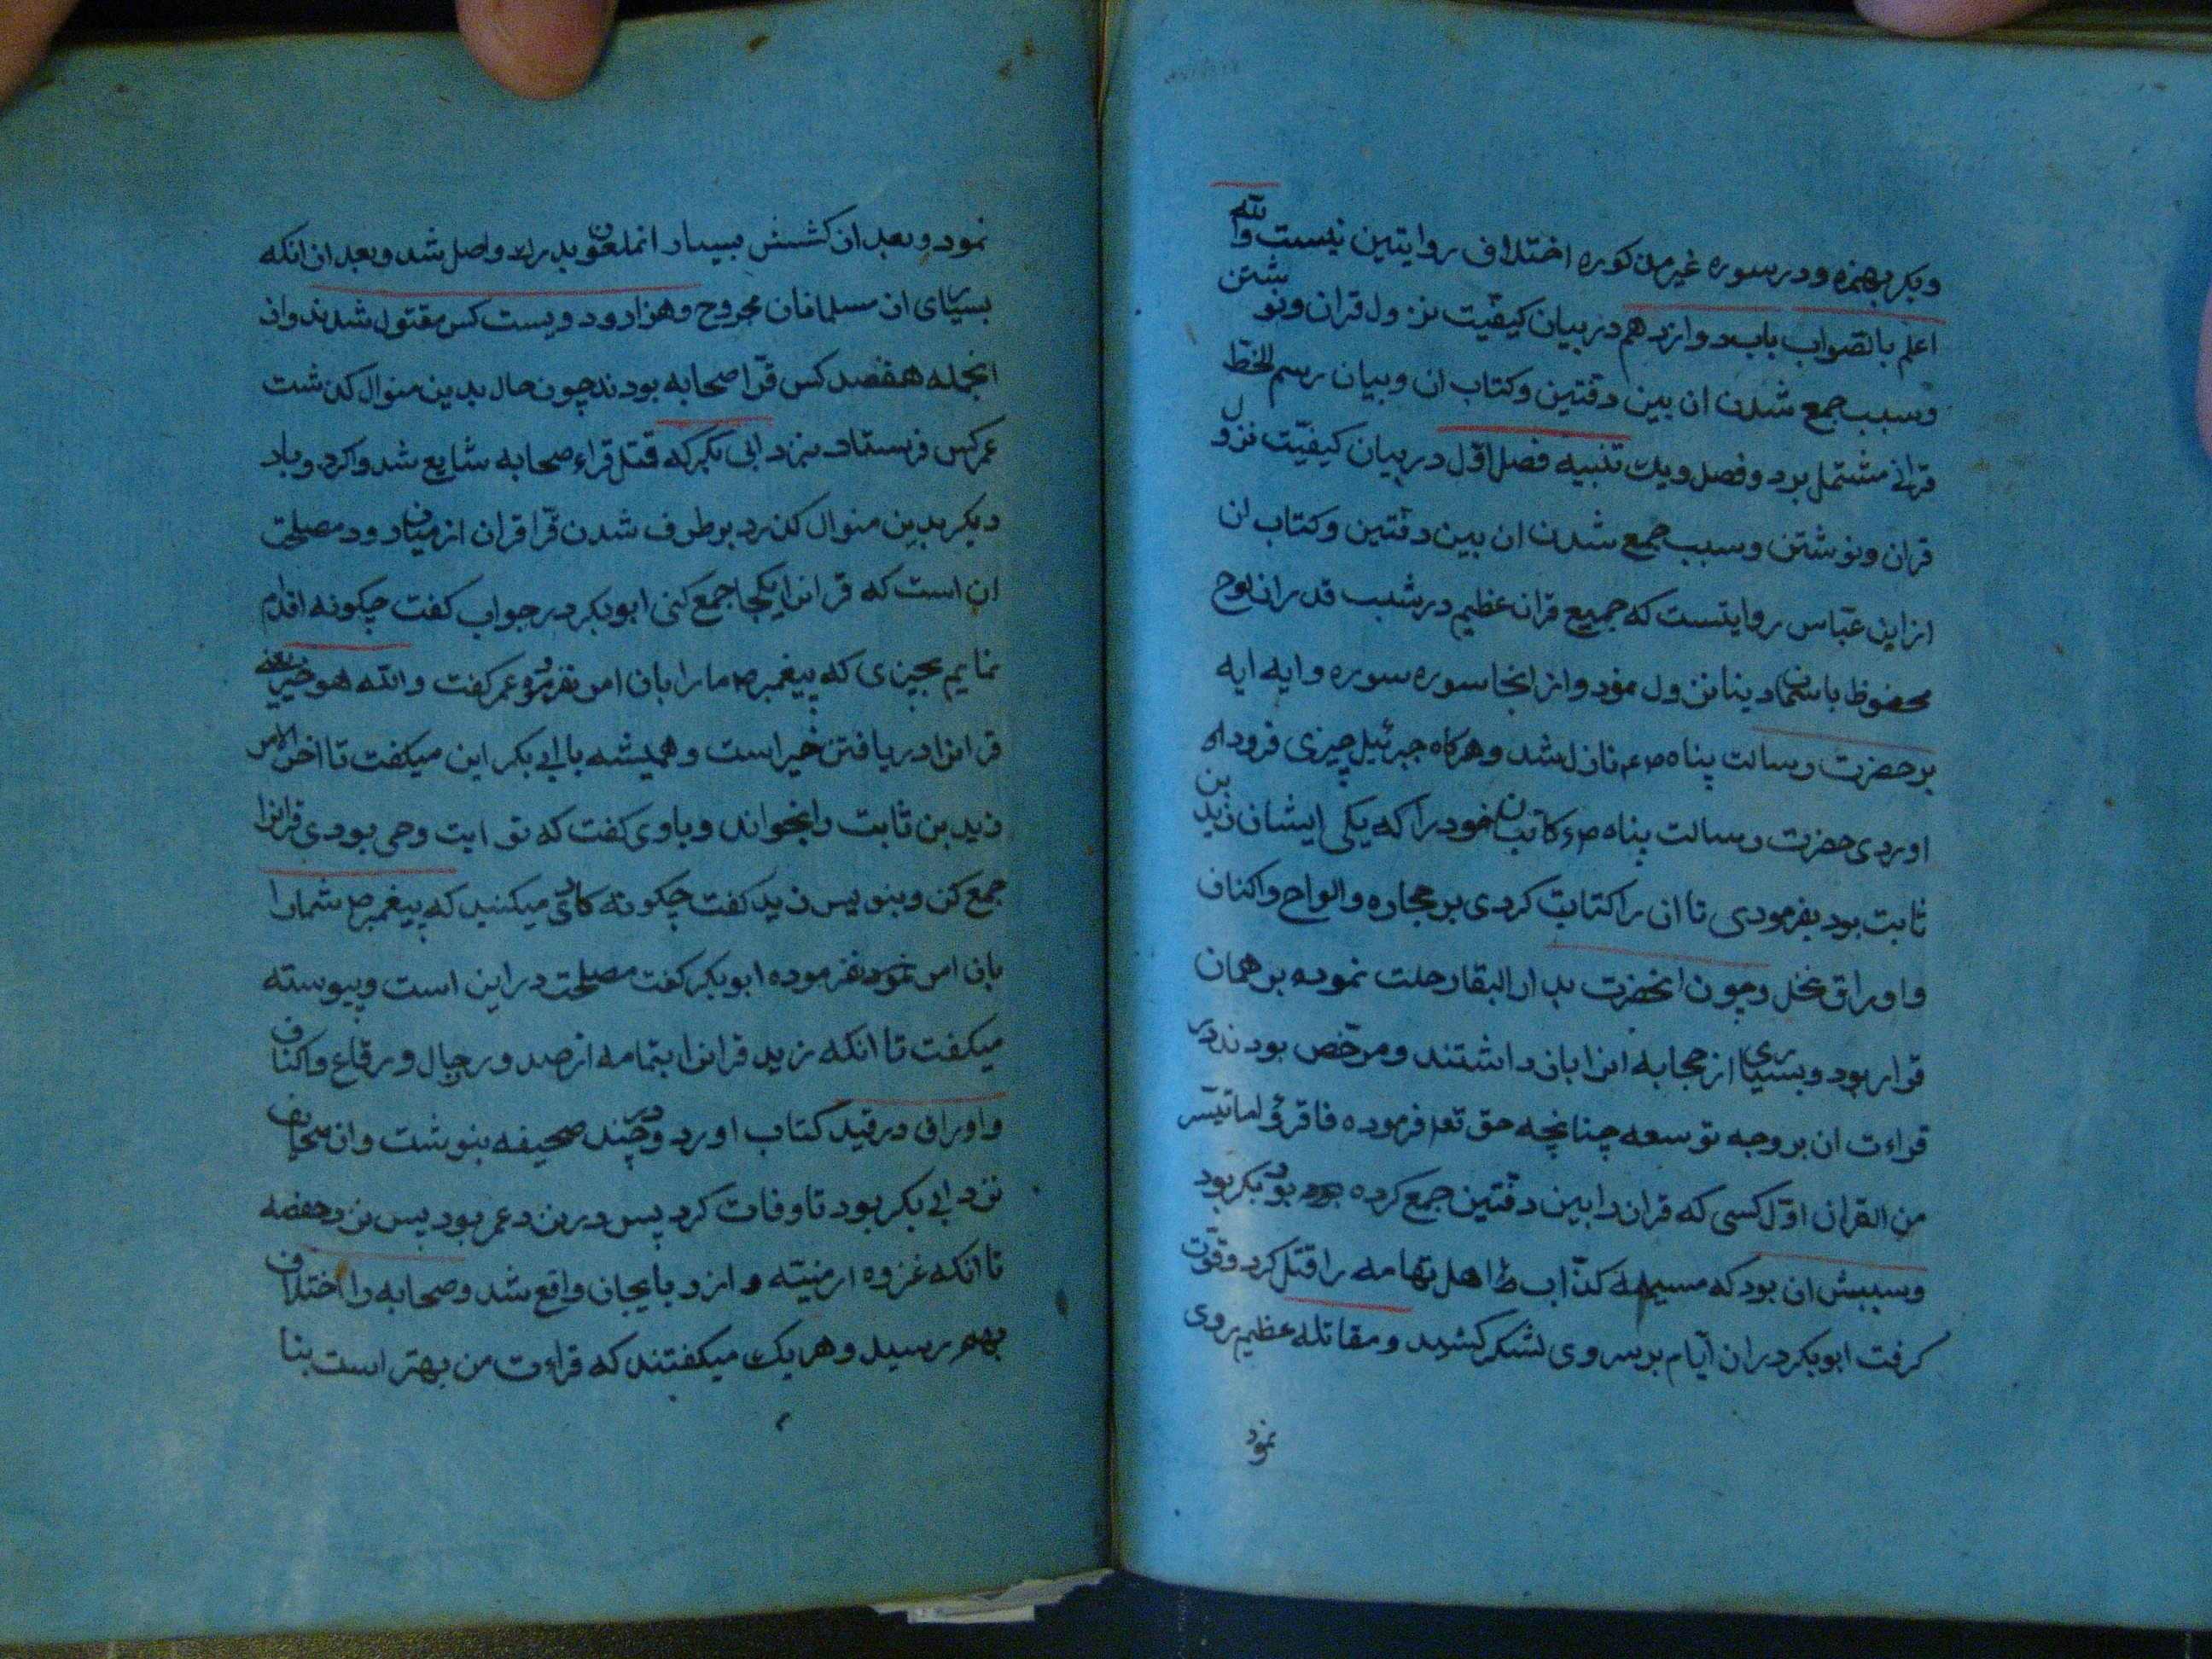 وبکر بهمزه ودر سوره غیر مذکوره اختلاف روایتین نیست والله
اعلم بالصواب باب دوازدهم در بیان کیفیت نزول قران ونوشتن
وسبب جمع شدن ان بین دفتین وکتاب ان وبیان رسم الخط
قرانی مشتمل بر دو فصل ویك تنبیه فصل اول در بیان کیفیت نزول
قران ونوشتن وسبب جمع شدن ان بین دفتین وکتاب ان
از ابن عباس روایتست که جمیع قران عظیم در شب قدر از لوح
محفوظ باسمان دنیا نزول نمود واز انجا سوره سوره وایه ایه
بر حضرت رسالت پناه صعم نازل شد وهرکاه جبرئیل چیزی فرود
اوردی حضرت رسالت پناه ص کاتبان خود را که یکی ایشان زید بن
ثابت بود بفرمودی تا ان را کتابت کردی بر حجاره والواح واکتاف
واوراق نخل وچون انحضرت بدار البقا رحلت نموده بر همان
قرار بود وبسیاری از صحابه انرا بان داشتند ومرخص بودند در
قراءت ان بر وجه توسعه چنانچه حق تعم فرموده فاقرؤا ما تیسر
من القران اول کسی که قران را بین دفتین جمع کرده بود بکر بود
وسببش ان بود که مسیلمه کذاب اهل تهامه را قتل کرد وقوت
کرفت ابوبکر دران ایام بر سر وی لشکر کشید ومقاتله عظیم روی
نمود
نمود وبعد از کشش بسیار انملعون بدرك واصل شد وبعد از انکه
بسیاری از مسلمانان مجروح وهزار ودویست کس مقتول شدند واز
انجمله هفصد کس قرا صحابه بودند چون حال بدین منوال کذشت
عمر کس فرستاد بنزد ابی بکر که قتل قراء صحابه شایع شد واکر دو بار
دیکر بدین منوال کذرد بر طرف شدن قرا قران از میان رود مصلحت
ان است که قرانرا یکجا جمع کنی ابوبکر در جواب کفت چکونه اقدام
نمایم بچیزی که پیغمبر ص ما را بان امر نفرموده عمر کفت والله هو خیر یعنی
قرانرا دریافتن خیر است وهمیشه با ابی بکر این میکفت تا اخر الامر
زید بن ثابت را بخواند وباوی کفت که تو ایت وحی بودی قرانرا
جمع کن وبنویس زید کفت چکونه کاری میکنید که پیغمبر ص شمارا
بان امر نفرموده ابوبکر کفت مصلحت در این است وپیوسته
میکفت تا انکه زید قرانرا بتمامه از صدور رجال ورقاع واکتاف
واوراق در قید کتاب اورد ودر چند صحیفه بنوشت وان صحایف
نزد ابی بکر بود تا وفات کرد پس در نزد عمر بود پس نزد حفصه
تا انکه غزوه ارمنیه و ازدبایجان واقع شد وصحابه را اختلاف
بهم رسید وهر یک میکفتند که قراءت من بهتر است بنا